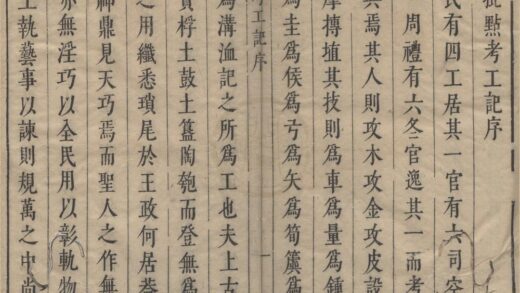 批點考工記序
民有四工居其一官有六司空
周禮有六冬官逸其一而考
具焉其人則攻木攻金攻皮設
摩摶埴其技則為車為量為鍾
為圭為侯為弓為矢為筍簴為
考工記序 一
為溝洫記之所為工也夫上古
蕢桴土鼓土簋陶匏而登無為
之用纖悉瑣尾於王政何居
神鼎見天巧焉而聖人之作無
亦無淫巧以全民用以彰軌物
工執藝事以諫則規萬之中尚